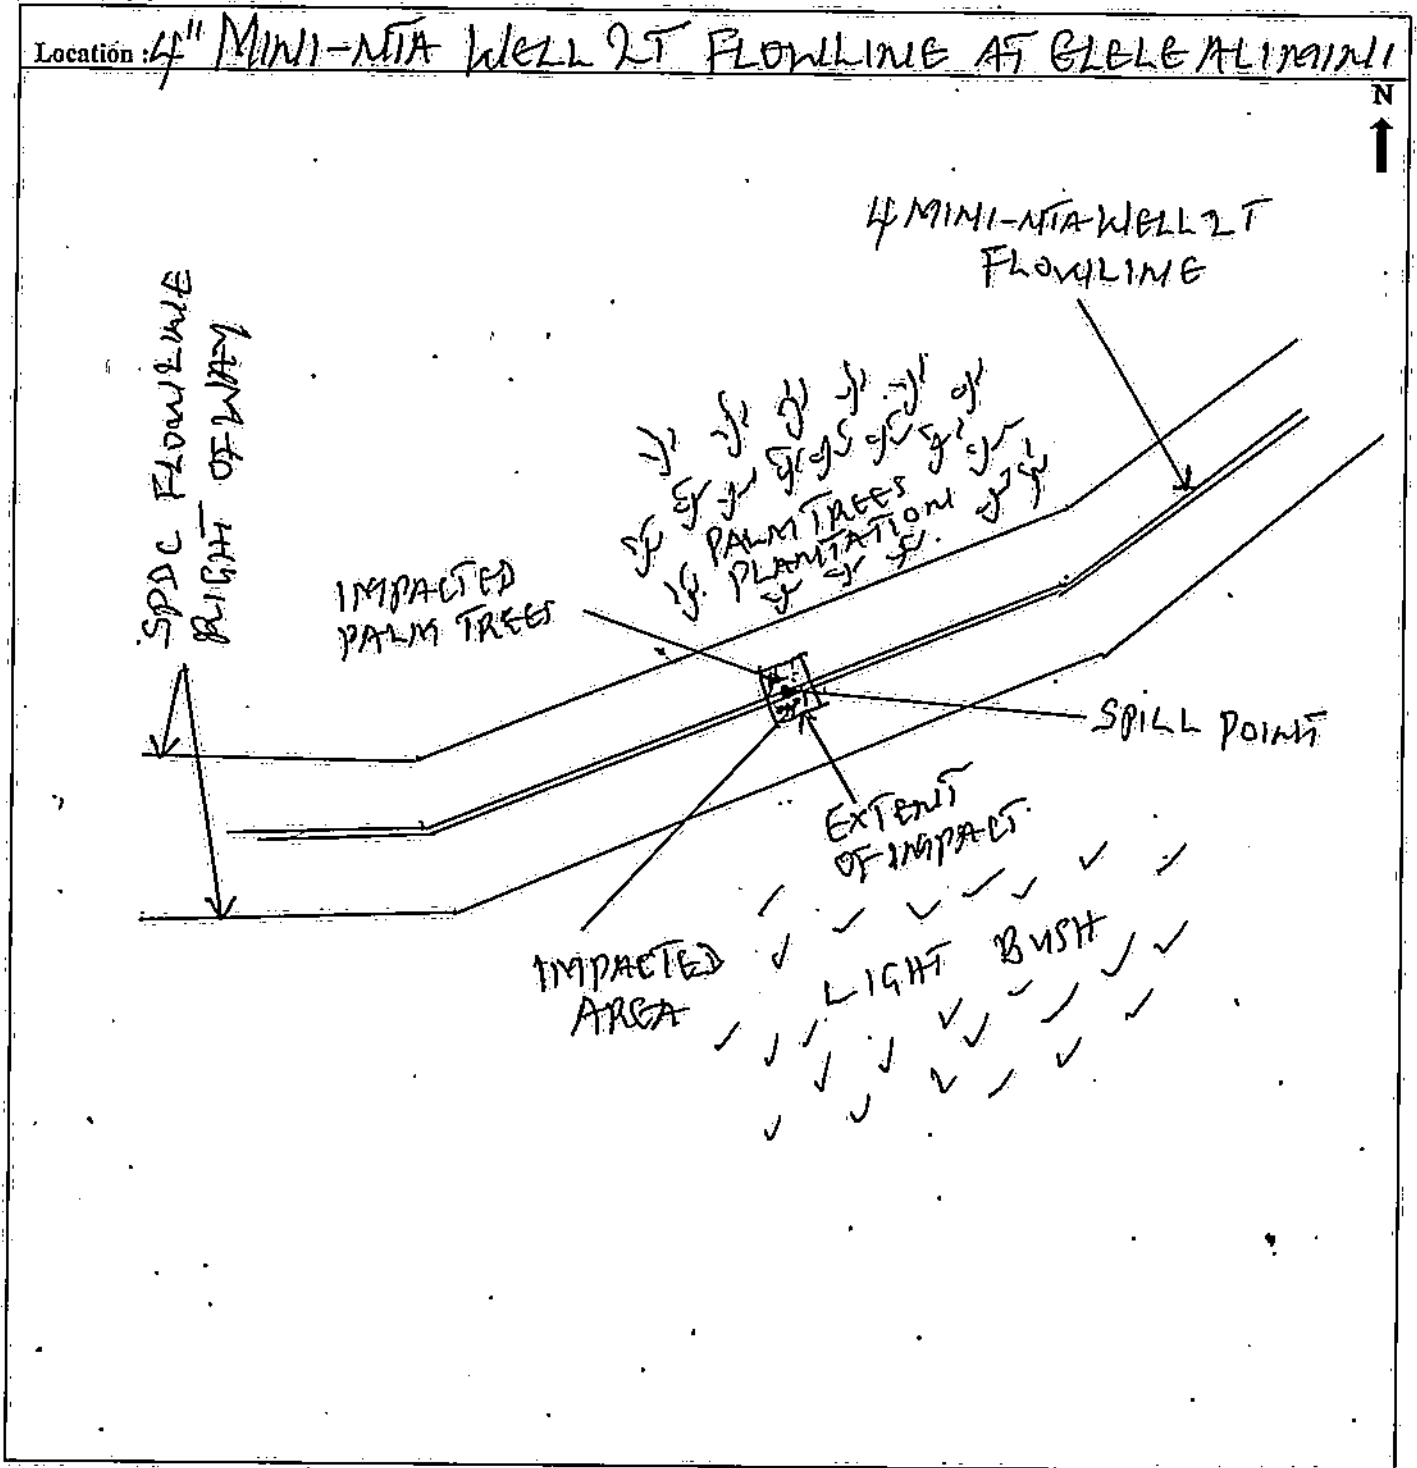 Location : 4" MINI-NTA WELL 2T FLOWLINE AT ELELE ALIMINI
N
4 MINI-NTA WELL 2T
FLOWLINE
SPDC FLOWLINE
RIGHT OF WAY
PALM TREES
PLANTATION
IMPACTED
PALM TREES
SPILL POINT
EXTENT
OF IMPACT
IMPACTED
AREA
LIGHT BUSH